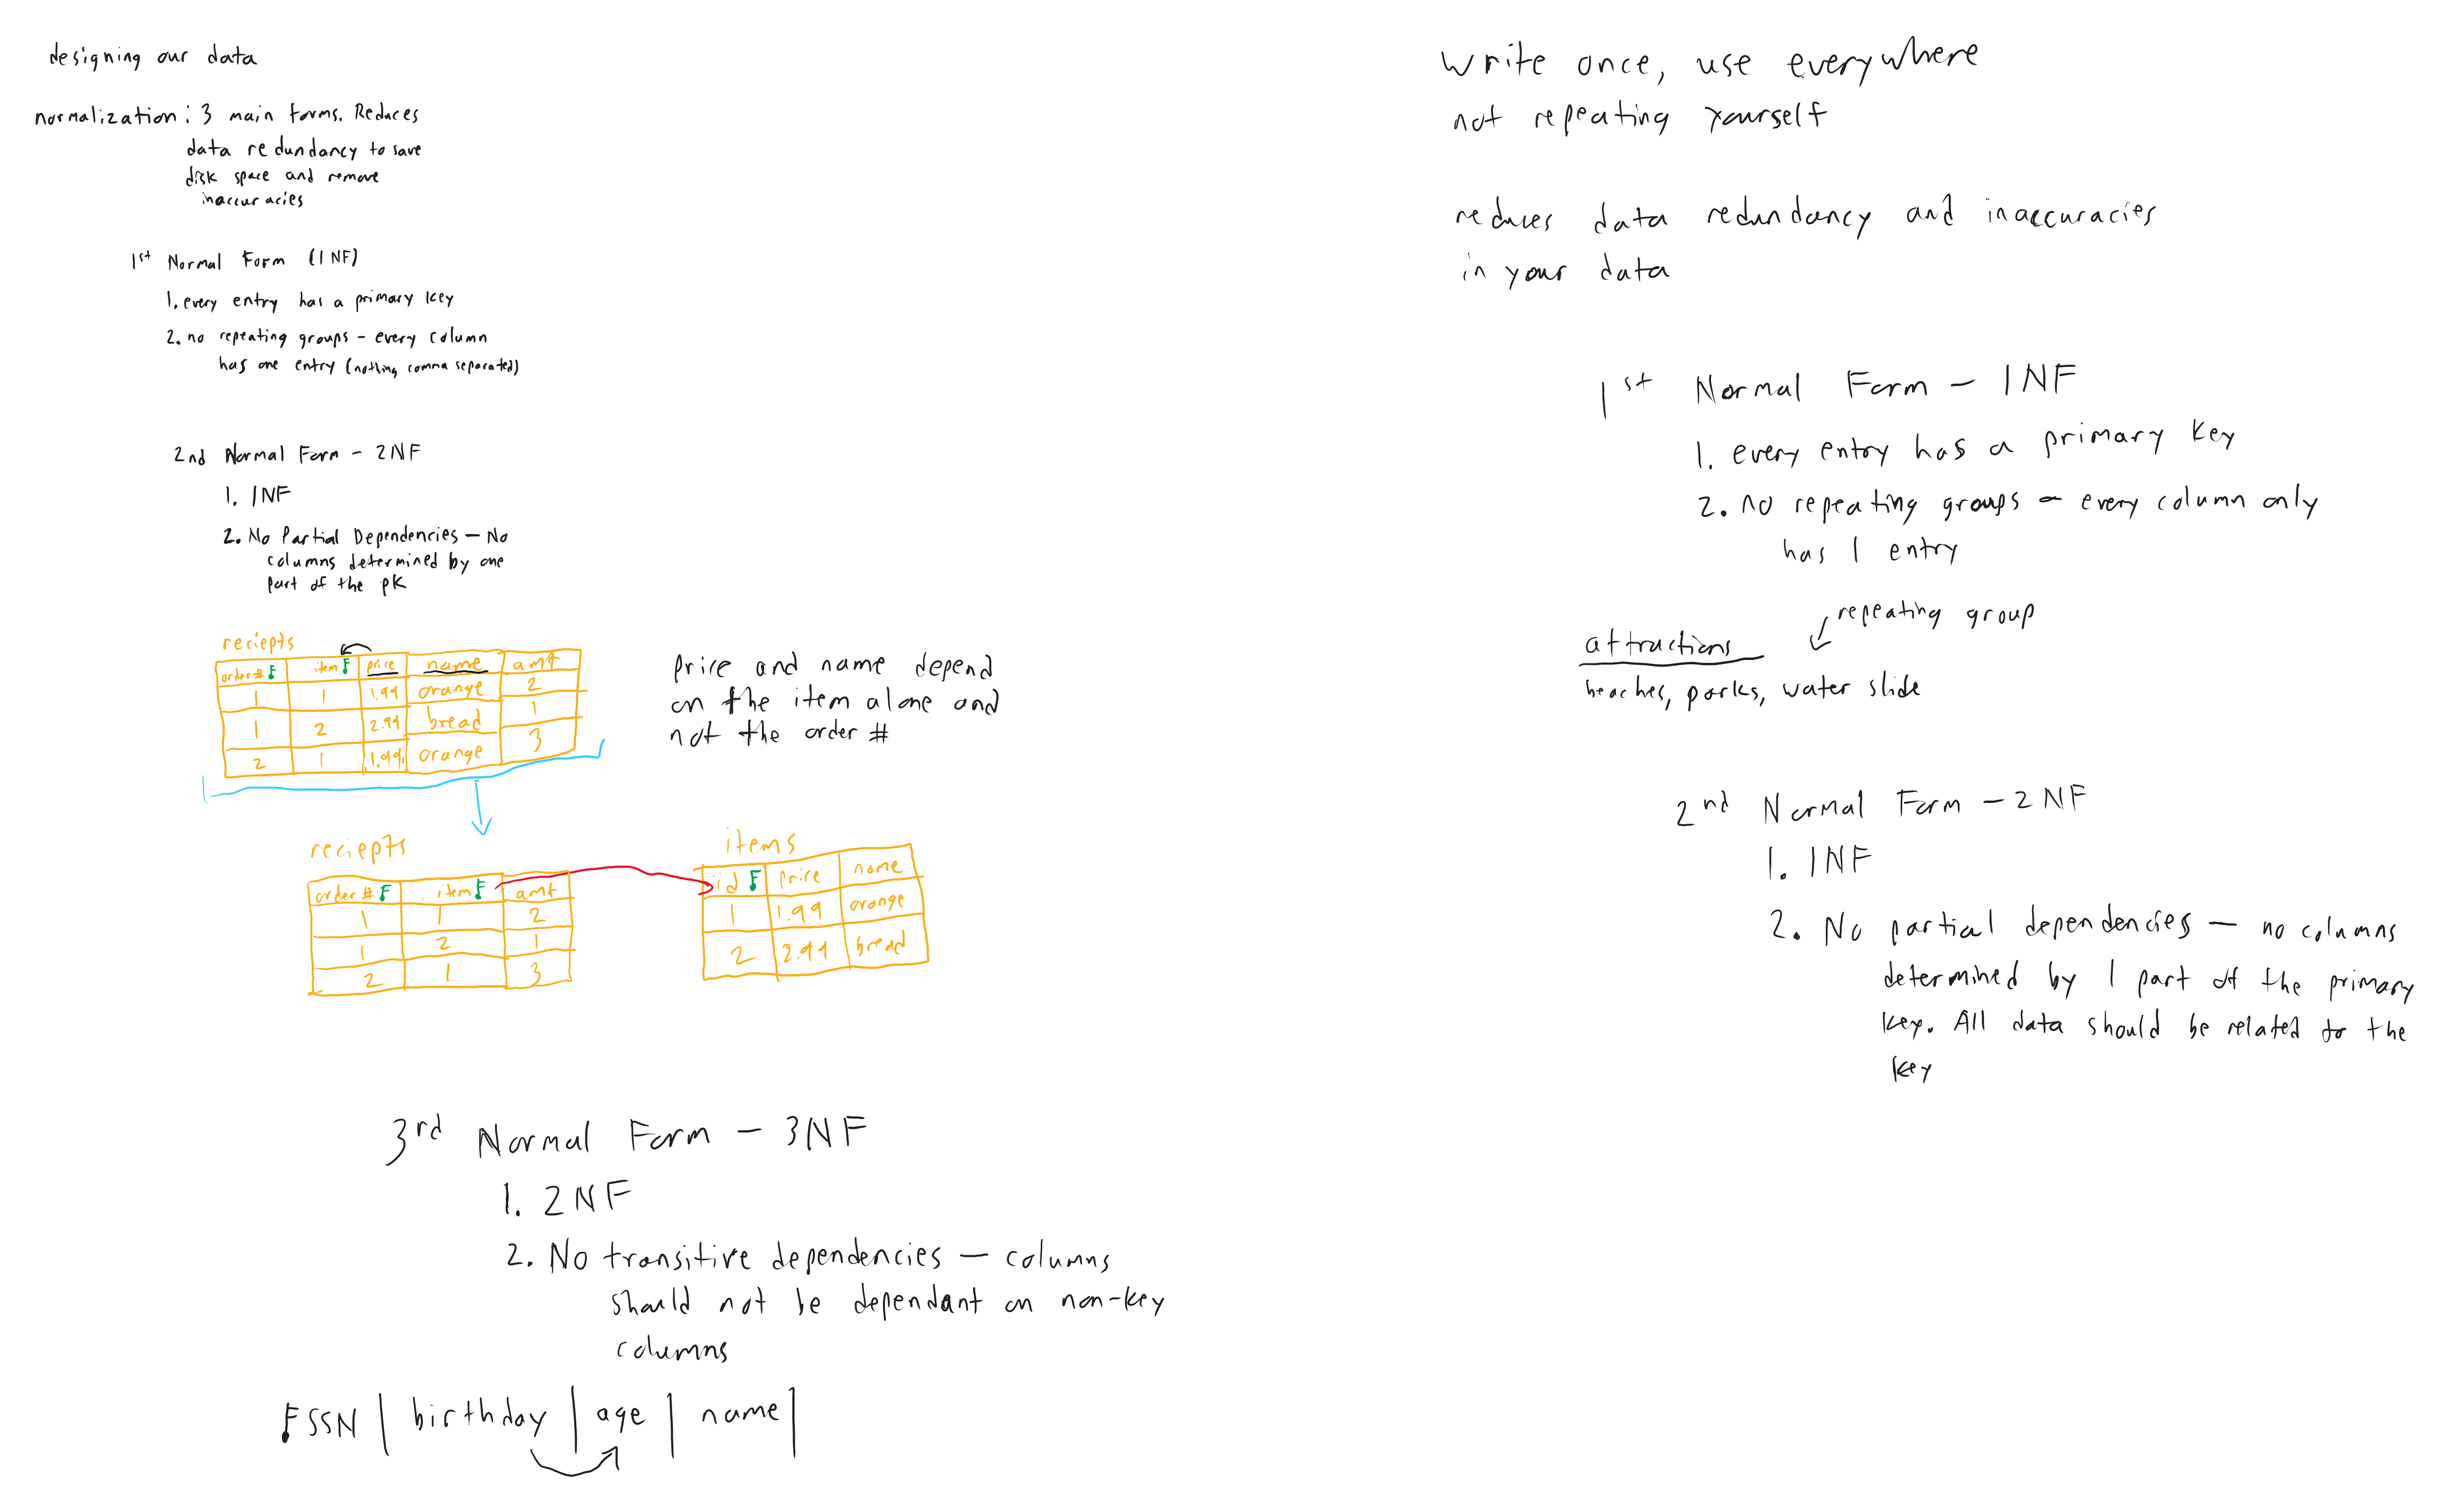 designing our data
normalization: 3 main forms. Reduces
data redundancy to save
disk space and remove
inaccuracies
1st Normal Form (1NF)
1. every entry has a primary key
2. no repeating groups - every column
has one entry (nothing comma separated)
2nd Normal Form - 2NF
1. 1NF
2. No Partial Dependencies - No
columns determined by one
part of the PK
reciepts
order # item price name amt
1 1 1.99 orange 2
1 2 2.99 bread 1
2 1 1.99 orange 3
price and name depend
on the item alone and
not the order #
reciepts
order # item amt
1 1 2
1 2 1
2 1 3
items
id price name
1 1.99 orange
2 2.99 bread
3rd Normal Form - 3NF
1. 2NF
2. No transitive dependencies - columns
should not be dependant on non-key
columns
SSN | birthday | age | name |
write once, use everywhere
not repeating yourself
reduces data redundancy and inaccuracies
in your data
1st Normal Form - 1NF
1. every entry has a primary key
2. no repeating groups - every column only
has 1 entry
repeating group
attractions
beaches, parks, water slide
2nd Normal Form - 2NF
1. 1NF
2. No partial dependencies - no columns
determined by 1 part of the primary
key. All data should be related to the
key